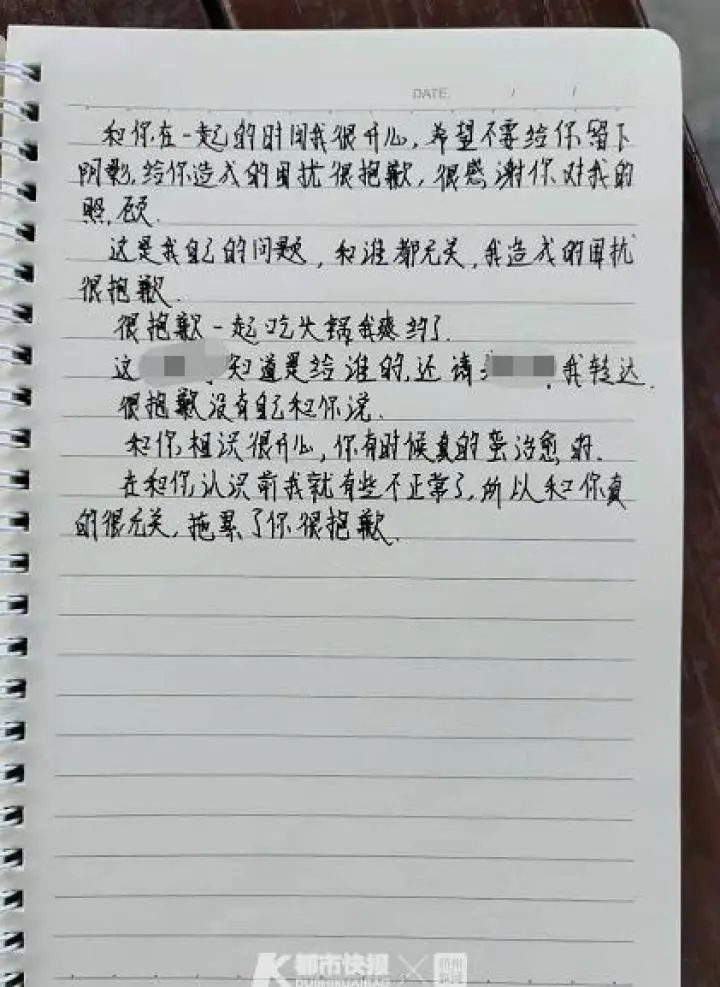 DATE / /
和你在一起的时间我很开心，希望不要给你留下
阴影，给你造成的困扰很抱歉，很感谢你对我的
照顾.
这是我自己的问题，和谁都无关，我造成的困扰
很抱歉.
很抱歉一起吃火锅我爽约了.
这 知道是给谁的，还请 我转达.
很抱歉没有自己和你说.
和你相识很开心，你有时候真的蛮治愈的.
在和你认识前我就有些不正常了，所以和你真
的很无关，拖累了你很抱歉.
都市快报 × 杭州新闻